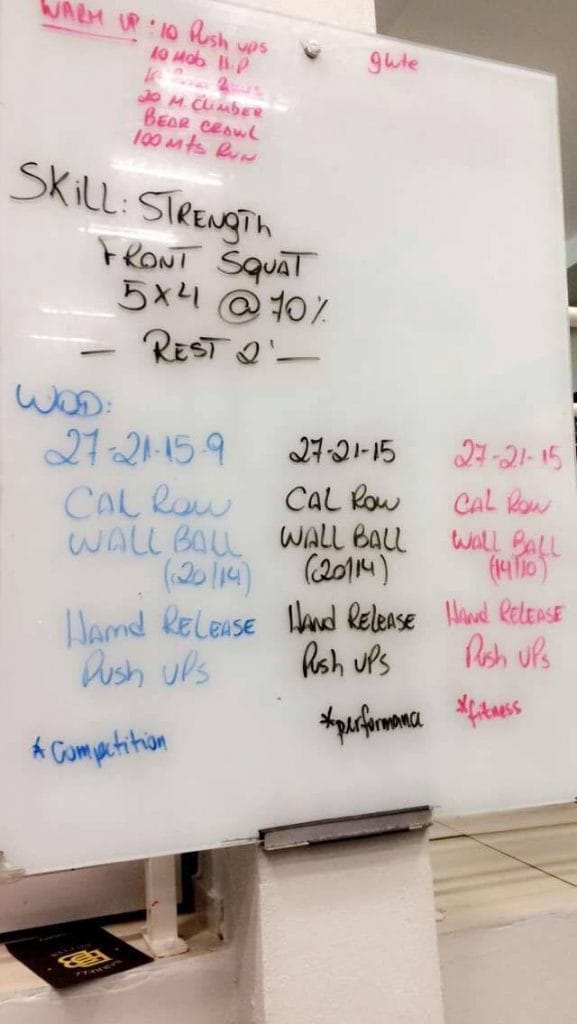 WARM UP: 10 Push ups
10 Mob H.P
20 M. CLIMBER
BEAR CRAWL
100 Mts RUN
glute
SKILL: STRENGTH
FRONT SQUAT
5x4 @ 70%
— REST 2' —
WOD:
27-21-15-9
CAL ROW
WALL BALL
(20/14)
Hamd RELEASE
Push UPs
* Competition
27-21-15
CAL ROW
WALL BALL
(20/14)
Hand RELEASE
Push UPs
*performance
27-21-15
CAL ROW
WALL BALL
(14/10)
Hand RELEASE
Push UPs
*fitness